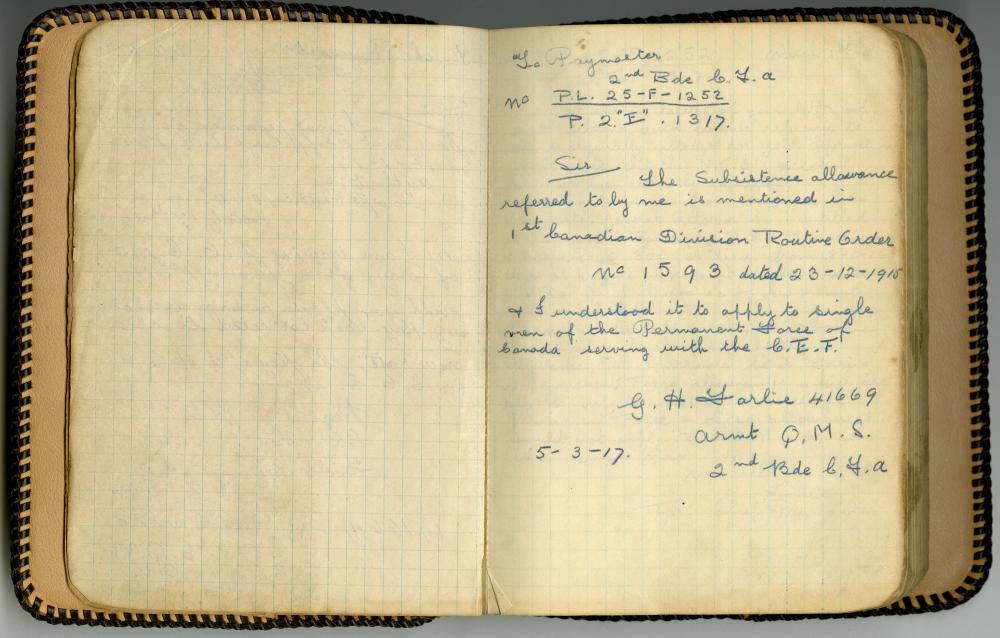 To Paymaster
2nd Bde C.F.A
No P.L. 25-F-1252
P. 2."F". 1317.
Sir
The Subsistence allowance
referred to by me is mentioned in
1st Canadian Division Routine Order
No 1593 dated 23-12-1915
& I understood it to apply to single
men of the Permanent Force of
Canada serving with the C.E.F.
G. H. Farlie 41669
Armt Q.M.S.
5-3-17.
2nd Bde C.F.A